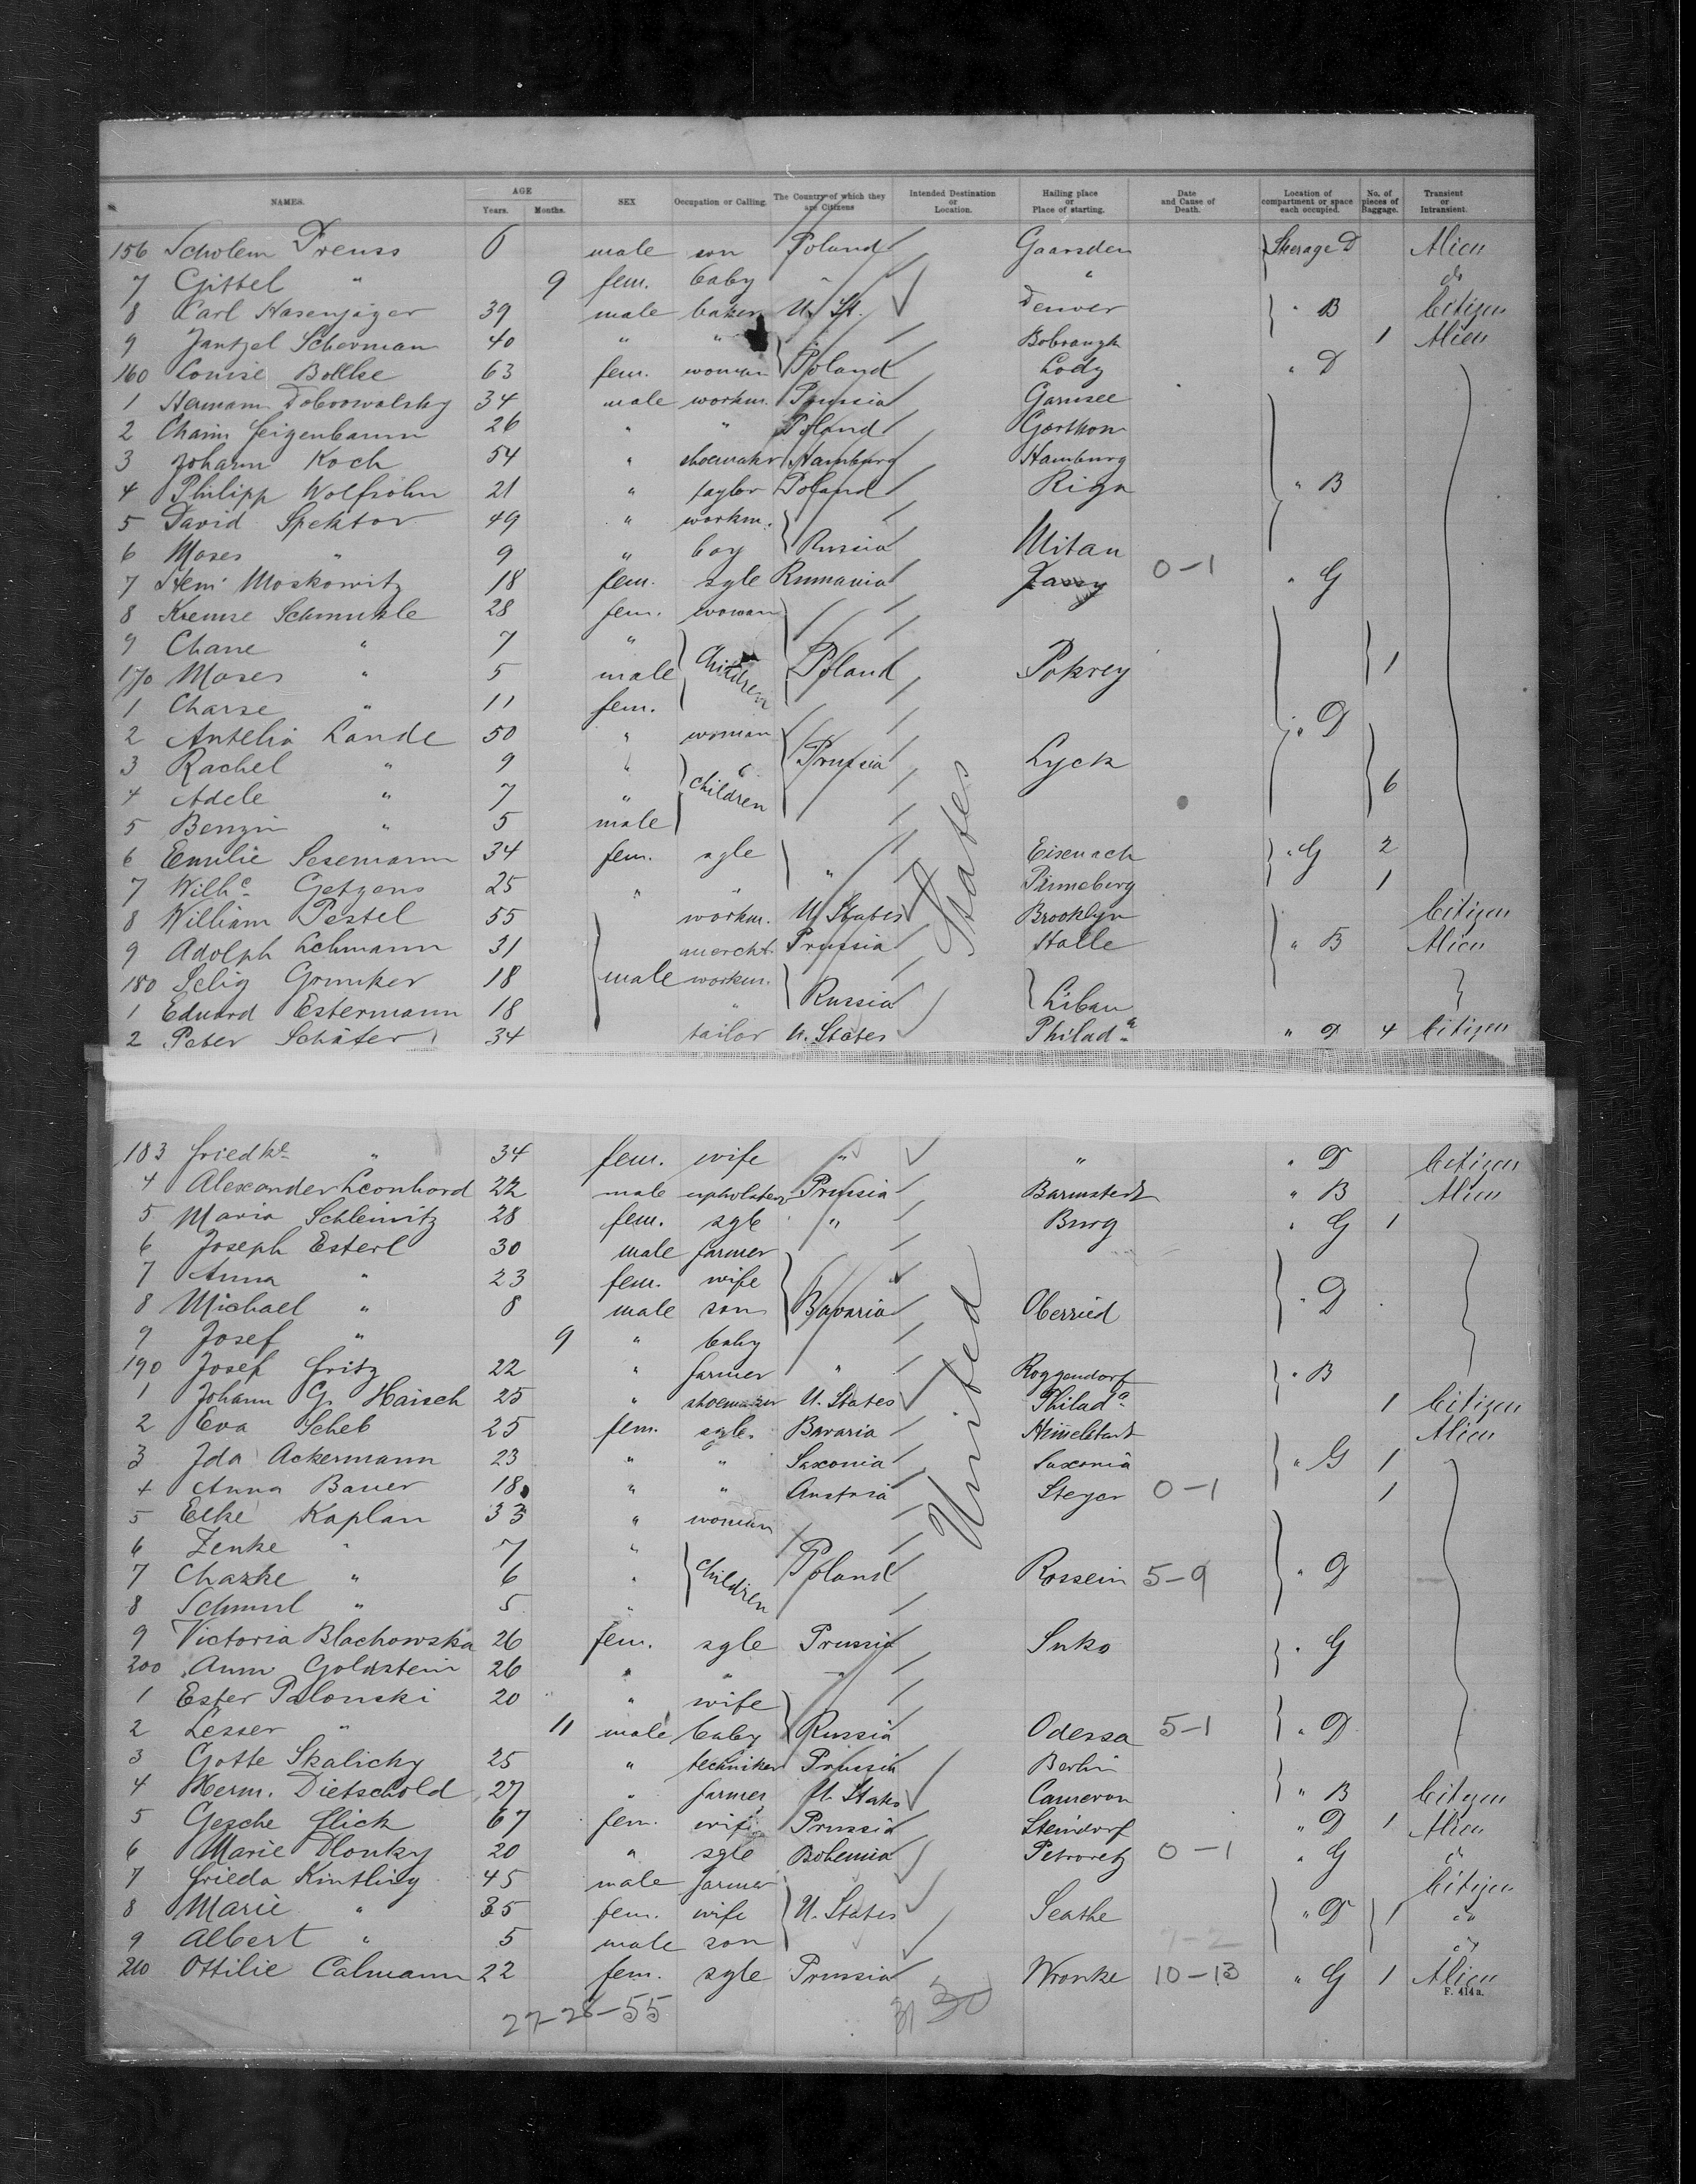 NAMES. AGE Years. Months. SEX Occupation or Calling. The Country of which they are Citizens Intended Destination or Location. Hailing place or Place of starting. Date and Cause of Death. Location of compartment or space each occupied. No. of pieces of Baggage. Transient or Intransient.
156 Scholem Preuss 6 male son Poland Gaarsden Sterage D Alien
7 Gittel " 9 fem. baby " " do
8 Carl Hasenjäger 39 male baker U. St. Denver " B Citizen
9 Jantzel Scherman 40 " " Bobrough 1 Alien
160 Louise Boltke 63 fem. woman Poland Lody " D
1 Hermann Dobrowolsky 34 male workm. Prussia Garnsee
2 Chaim Feigenbaum 26 " " Poland Gorthon
3 Johann Koch 54 " shoemaker Hamburg Hamburg
4 Philipp Wolfsohn 21 " taylor Poland Riga " B
5 David Spektor 49 " workm.
6 Moses " 9 " boy Russia Mitau
7 Heni Moskowitz 18 fem. sgle Rumania Jassy 0-1 " G
8 Kreuse Schmukle 28 fem. woman
9 Chane " 7 "
170 Moses " 5 male Children Poland Pokrey 1
1 Charse " 11 fem. " D
2 Antelia Lande 50 " woman
3 Rachel " 9 " Prussia Lyck
4 Adele " 7 " Children 6
5 Benzin " 5 male
6 Emilie Sesemann 34 fem. sgle " Eisenach " G 2
7 Wilhe Getzens 25 " " Pinneberg 1
8 William Pestel 55 workm. U. States Brooklyn Citizen
9 Adolph Lehmann 31 mercht. Prussia Halle " B Alien
180 Selig Grunker 18 male workm.
1 Eduard Estermann 18 " Russia Libau
2 Peter Schäfer 34 tailor U. States Philada " D 4 Citizen
183 Friedke " 34 fem. wife " " " D Citizen
4 Alexander Leonhard 22 male upholsterer Prussia Barmstedt " B Alien
5 Maria Schleinitz 28 fem. sgle " Burg " G 1
6 Joseph Esterl 30 male farmer
7 Anna " 23 fem. wife
8 Michael " 8 male son Bavaria Oberried " D
9 Josef " 9 " baby
190 Josef Fritz 22 " farmer " Roggendorf " B
1 Johann G. Haisch 25 " shoemaker U. States Philada 1 Citizen
2 Eva Scheb 25 fem. sgle. Bavaria Alien
3 Ida Ackermann 23 " " Saxonia Saxonia " G 1
4 Anna Bauer 18 " " Austria Steyer 0-1 1
5 Elke Kaplan 33 " woman
6 Zenke " 7 "
7 Chazke " 6 " Children Poland Rossein 5-9 " D
8 Schmul " 5 "
9 Victoria Blachowska 26 fem. sgle Prussia Suko " G
200 Anna Goldstein 26 " " "
1 Ester Palonski 20 " wife
2 Lesser " 11 male baby Russia Odessa 5-1 " D
3 Gotte Skalicky 25 " techniker Prussia Berlin
4 Herm. Dietschold 27 " farmer U. States Cameron " B Citizen
5 Gesche Glick 67 fem. wife Prussia Steindorf " D 1 Alien
6 Marie Dlouky 20 " sgle Bohemia Petrovetz 0-1 " G do
7 Frieda Kintling 45 male farmer Citizen
8 Marie " 35 fem. wife U. States Seathe " D 1 do
9 Albert " 5 male son do
210 Ottilie Calmann 22 fem. sgle Prussia Wronke 10-13 " G 1 Alien
United States
F. 414 a.
27-28-55 31 30